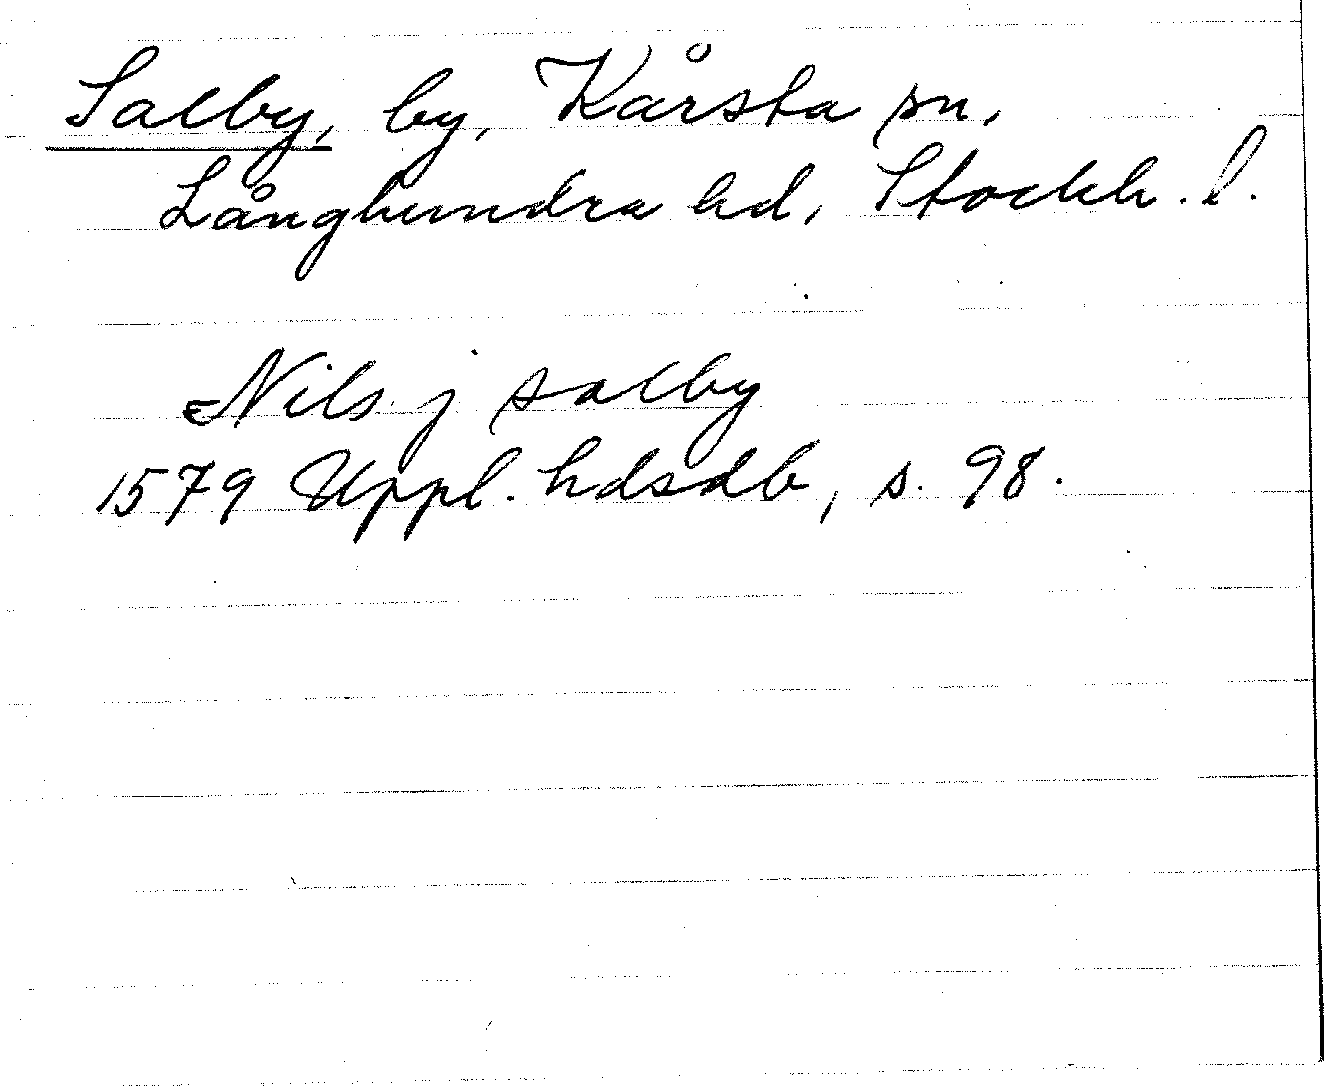 Salby, by, Kårsta sn,
Långhundra hd, Stockh. l.
Nils j salby
1579 Uppl. hdsdb, s. 98.